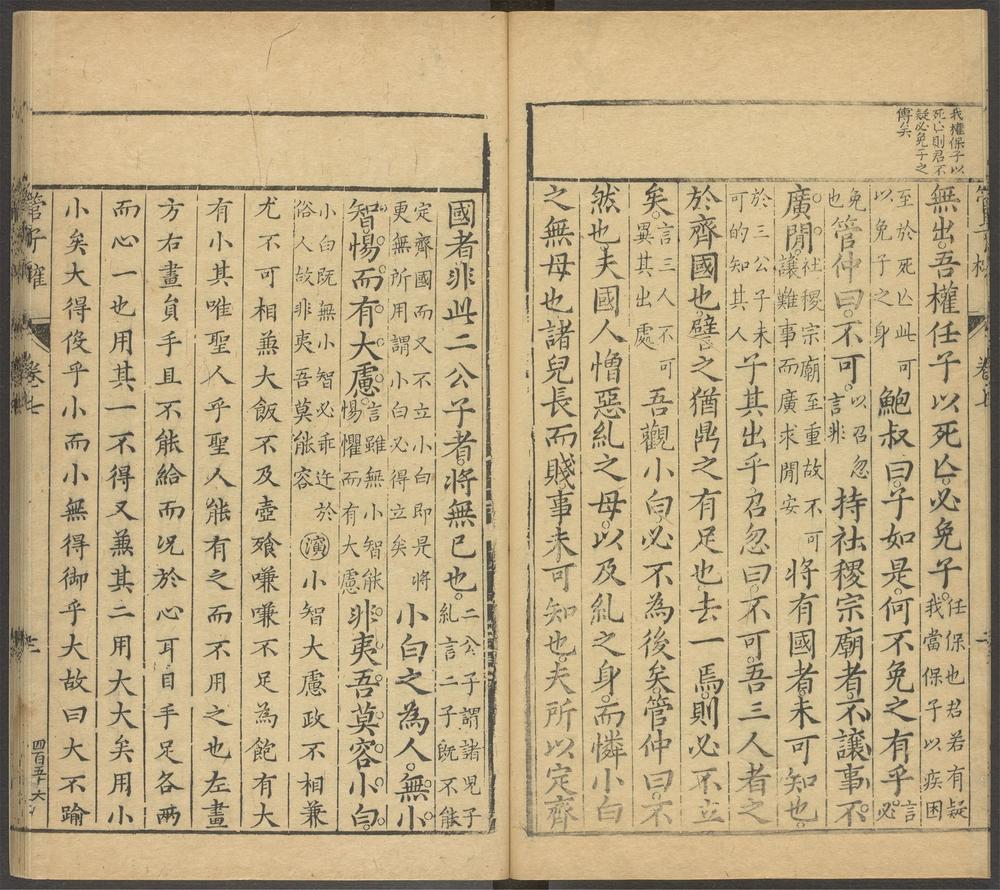 我權保子以
死亡則君不
疑必免子之
傅矣
無出。吾權任子以死亡。必免子。任保也君若有疑我當保子以疾困
至於死亡此可以免子之身鮑叔曰。子如是。何不免之有乎。言必
免也管仲曰。不可。以召忽言非持社稷宗廟者。不讓事。不
廣閒。社稷宗廟至重故不可讓難事而廣求閒安將有國者。未可知也。
於三公子未可的知其人子其出乎。召忽曰。不可。吾三人者之
於齊國也。譬之猶鼎之有足也。去一焉。則必不立
矣。言三人不可異其出處吾觀小白。必不為後矣。管仲曰。不
然也。夫國人憎惡糺之母。以及糺之身。而憐小白
之無母也。諸兒長而賤。事未可知也。夫所以定齊
國者。非此二公子者。將無已也。二公子謂諸兒子糺言二子既不能
定齊國而又不立小白即是將更無所用謂小白必得立矣小白之為人。無小
智。惕而有大慮。言雖無小智能惕懼而有大慮非夷吾莫容小白。
小白既無小智必乖迕於俗人故非夷吾莫能容演小智大慮政不相兼
尤不可相兼大飯不及壺飧嗛嗛不足為飽有大
有小其唯聖人乎聖人能有之而不用之也左畫
方右畫員手且不能給而況於心耳目手足各兩
而心一也用其一不得又兼其二用大大矣用小
小矣大得伇乎小而小無得御乎大故曰大不踰
管子榷
卷七
四百五十六